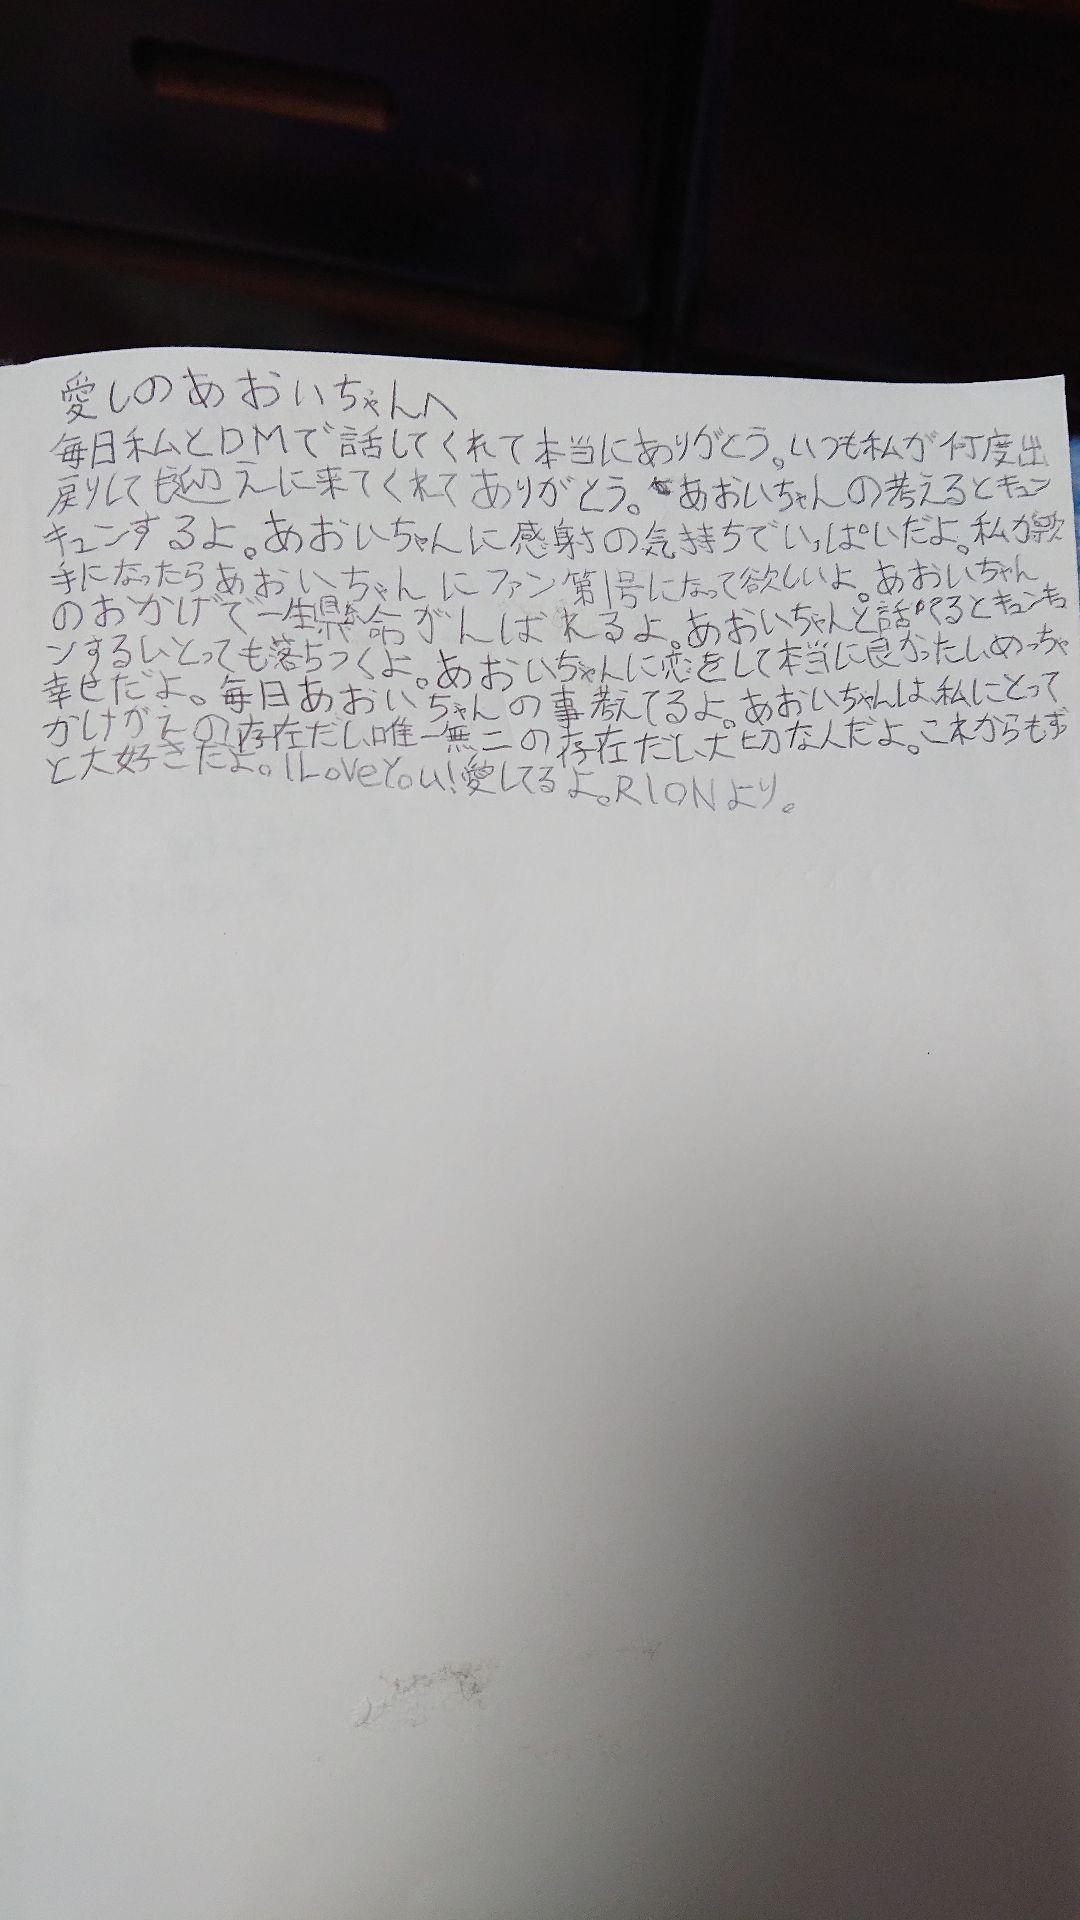 愛しのあおいちゃんへ
毎日私とDMで話してくれて本当にありがとう。いつも私が何度出
戻りしても迎えに来てくれてありがとう。あおいちゃんの考えるとキュン
キュンするよ。あおいちゃんに感射の気持ちでいっぱいだよ。私が歌
手になったらあおいちゃんにファン第1号になって欲しいよ。あおいちゃん
のおかげで一生懸命がんばれるよ。あおいちゃんと話してるとキュンキュ
ンするしとっても落ちつくよ。あおいちゃんに恋をして本当に良かったしめっちゃ
幸せだよ。毎日あおいちゃんの事考えてるよ。あおいちゃんは私にとって
かけがえの存在だし唯一無二の存在だし大切な人だよ。これからもず
と大好きだよ。I LoveYou!愛してるよ。RIONより。